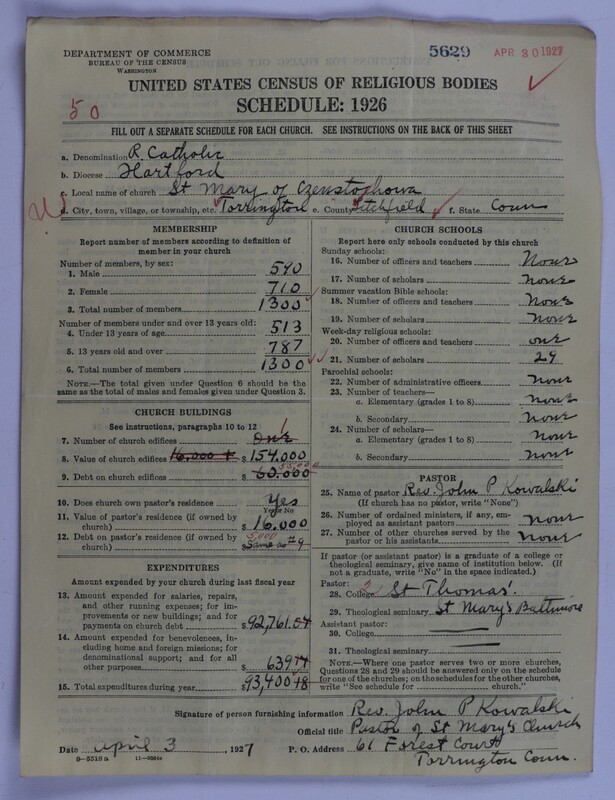 DEPARTMENT OF COMMERCE
BUREAU OF THE CENSUS
WASHINGTON
5629
APR 30 1927
UNITED STATES CENSUS OF RELIGIOUS BODIES
SCHEDULE: 1926
50
FILL OUT A SEPARATE SCHEDULE FOR EACH CHURCH. SEE INSTRUCTIONS ON THE BACK OF THIS SHEET
a. Denomination R. Catholic
b. Diocese Hartford
c. Local name of church St Mary of Czenstochowa
d. City, town, village, or township, etc. Torrington e. County Litchfield f. State Conn
MEMBERSHIP
Report number of members according to definition of
member in your church
Number of members, by sex:
1. Male 590
2. Female 710
3. Total number of members 1300
Number of members under and over 13 years old:
4. Under 13 years of age 513
5. 13 years old and over 787
6. Total number of members 1300
NOTE.—The total given under Question 6 should be the
same as the total of males and females given under Question 3.
CHURCH BUILDINGS
See instructions, paragraphs 10 to 12
7. Number of church edifices One 1
8. Value of church edifices 16,000 $154.000
9. Debt on church edifices $60.000 55,000
10. Does church own pastor's residence Yes
Yes or No
11. Value of pastor's residence (if owned by
church) $16.000
12. Debt on pastor's residence (if owned by
church) 5,000 $Same as #9
EXPENDITURES
Amount expended by your church during last fiscal year
13. Amount expended for salaries, repairs,
and other running expenses; for im-
provements or new buildings; and for
payments on church debt $92,761.04
14. Amount expended for benevolences, in-
cluding home and foreign missions; for
denominational support; and for all
other purposes $639 14
15. Total expenditures during year $93,400 18
CHURCH SCHOOLS
Report here only schools conducted by this church
Sunday schools:
16. Number of officers and teachers None
17. Number of scholars None
Summer vacation Bible schools:
18. Number of officers and teachers None
19. Number of scholars None
Week-day religious schools:
20. Number of officers and teachers one
21. Number of scholars 29
Parochial schools:
22. Number of administrative officers None
23. Number of teachers—
a. Elementary (grades 1 to 8) None
b. Secondary None
24. Number of scholars—
a. Elementary (grades 1 to 8) None
b. Secondary None
PASTOR
25. Name of pastor Rev. John P Kowalski
(If church has no pastor, write "None")
26. Number of ordained ministers, if any, em-
ployed as assistant pastors none
27. Number of other churches served by the
pastor or his assistants none
If pastor (or assistant pastor) is a graduate of a college or
theological seminary, give name of institution below. (If
not a graduate, write "No" in the space indicated.)
Pastor:
28. College St Thomas'
29. Theological seminary St Mary's Baltimore
Assistant pastor:
30. College
31. Theological seminary
NOTE.—Where one pastor serves two or more churches,
Questions 28 and 29 should be answered only on the schedule
for one of the churches; on the schedules for the other churches,
write "See schedule for church."
Signature of person furnishing information Rev. John P Kowalski
Official title Pastor of St Mary's Church
Date April 3, 1927 P. O. Address 61 Forest Court
Torrington Conn.
8—5518a